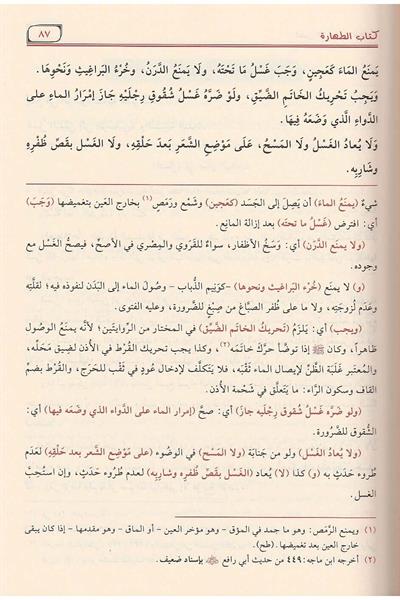 كتاب الطهارة
٨٧
يَمنَعُ المَاءَ كَعَجِينٍ، وَجَبَ غَسْلُ مَا تَحْتَهُ، ولَا يَمنَعُ الدَّرَنُ، وخُرْءُ البَراغيثِ وَنَحْوِهَا.
وَيَجِبُ تَحْرِيكُ الخَاتَمِ الضَّيِّقِ، وَلَوْ ضَرَّهُ غَسْلُ شُقُوقِ رِجْلَيْهِ جَازَ إِمْرَارُ الماءِ على
الدَّواءِ الَّذي وَضَعَهُ فِيهَا.
وَلَا يُعادُ الغَسْلُ ولَا المَسْحُ، عَلَى مَوْضِعِ الشَّعرِ بَعدَ حَلْقِهِ، ولَا الغَسْل بقَصِّ ظُفْرِهِ
وشَارِبِهِ.
شيءٌ (يمنَعُ الماءَ) أن يَصِلَ إلى الجَسد (كعَجينٍ) وشَمْع ورَمَصٍ(١) بخارج العَين بتَغميضِها (وَجَبَ)
أي: افترض (غَسْلُ ما تحتَه) بعد إزالة المانِع.
(ولا يمنع الدَّرَن) أي: وَسَخُ الأظفار، سواءٌ للقَرَوي والمِصْري في الأصحِّ، فيصحُّ الغَسل مع
وجوده.
(و) لا يمنع (خُرْءُ البَراغيث ونحوها) -كوَنِيم الذُّباب - وصُولَ الماء إلى البَدَن لنفوذه فيه؛ لقلَّتِه
وعَدَم لُزوجَتِه، ولا ما على ظُفر الصبَّاغ من صِبْغ للضَّرورة، وعليه الفتوى.
(ويجب) أي: يَلزَمُ (تَحريكُ الخاتَم الضَّيِّق) في المختار من الرِّوايتَين؛ لأنَّه يمنَعُ الوصُول
ظاهراً، وكان ﷺ إذا توضَّأ حرَّكَ خاتمَه(٢)، وكذا يجب تحريك القُرْط في الأذن لضِيق مَحلِّه،
والمُعتبر غَلَبَة الظنِّ لإيصال الماء ثَقْبَه، فلا يَتكلَّف لإدخال عُودٍ في ثَقْب للحَرَج، والقُرْط بضمِّ
القاف وسكون الرَّاء: ما يَتعلَّق في شَحْمة الأذن.
(ولو ضرَّه غَسْلُ شُقوق رِجْلَيه جازَ) أي: صحَّ (إمرار الماء على الدَّواء الذي وضَعَه فيها) أي:
الشُّقوق للضَّرورة.
(ولا يُعادُ الغَسْل) ولو من جَنابة (ولا المَسْح) في الوضُوء (على مَوْضِع الشَّعر بعد حَلْقِهِ) لعَدَم
طُروء حَدَثٍ به (و) كذا (لا) يُعاد (الغَسْل بقَصِّ ظُفْرِه وشاربِهِ) لعدم طُروء حَدَثٍ، وإن استُحِبَّ
الغسل.
(١) ويمنع الرَّمَص: وهو ما جمد في المؤق - وهو مؤخر العين - أو الماق - وهو مقدمها - إذا كان يبقى
خارج العين بعد تغميضها. (طح).
(٢) أخرجه ابن ماجه: ٤٤٩ من حديث أبي رافع ﷺ بإسناد ضعيف.